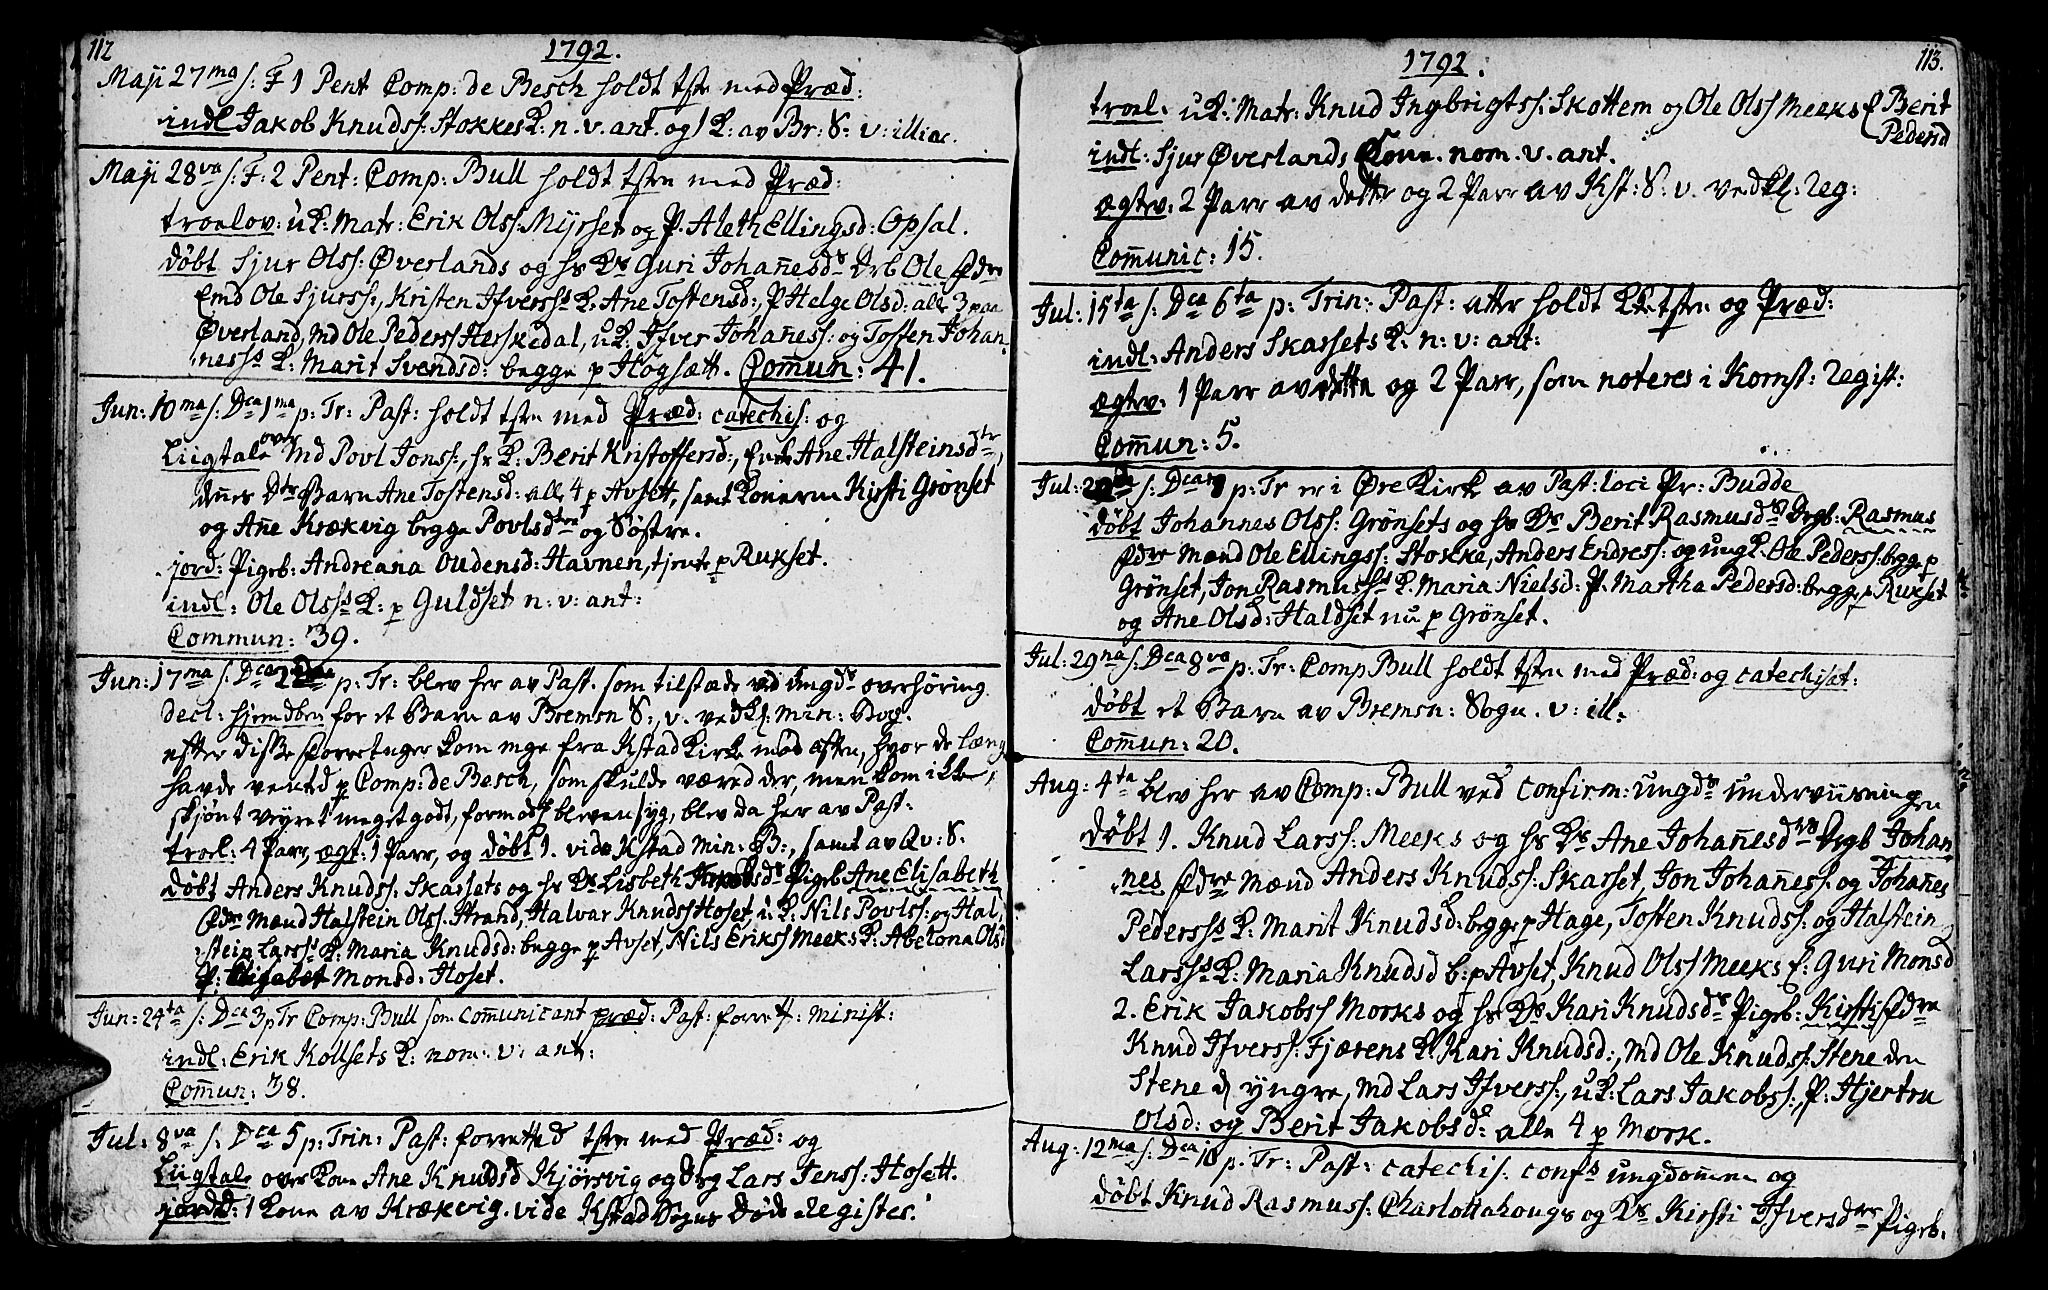 112
1792.
Maji 27ma s: F 1 Pent Comp: de Besch holdt tstn med Præd:
indl Jakob Knudss: Stokkes K: n. v. ant. og 1 K: av Br: S: v: illia.
Maji 28va s: F: 2 Pent: Comp: Bull holdt tstn med Præd:
troelov: uK: Matr: Erik Olss: Myrset og P. Aleth Ellingsd: Opsal.
døbt Sjur Olss: Øverlands og hs Ks Guri Johañesds Drb Ole fdre
Emd Ole Sjurss:, Kristen Ifverss K: Ane Tostensd:, P Helge Olsd: alle 3 paa
Øverland, Md Ole Pederss Herskedal, uK: Ifver Johañess: og Tosten Johan-
ness K: Marit Svendsd: begge p Høgsætt. Com̃un: 41.
Jun: 10ma s: Dca 1ma p: Tr: Past: holdt tstn med Præd: catechis: og
Liigtale over Md Povl Jonss:, hs K: Berit Kristoffersd:, Enke Ane Halsteinsdtr,
dnes Dtrs Barn Ane Tostensd: alle 4 p Avsett, samt Konerne Kirsti Grønset
og Añe Krækvig begge Povlsdtre og Søstre.
jord: Pigeb: Andreana Oudensd: Havnen, tjente p Rukset.
indl: Ole Olss K: p Guldset n: v: ant:
Commun: 39.
Jun: 17ma s: Dca 2da p: Tr: blev her av Past. som tilstæde ved ungds overhøring
decl: hjemdben for et Barn av Bremsn S:, v. ved Kl: min: Bog.
efter disse forretnger kom mge fra Kstad Kirke mod aften, hvor de læng
havde ventd p Comp: de Besch, som skulde været der, men kom ikke,
skjønt veyret meget godt, formods bleven syg, blev da her av Past:
troel: 4 Parr, ægt: 1 Parr, og døbt 1. vide Kstad min: B:, samt av Qv: S.
døbt Anders Knudss: Skassets og hs Ks Lisbeth ds Pigeb Ane Elisabeth
fdre Mænd Halstein Olss: Strand, Halvar Knudss Hoset, uK: Nils Povlss: og Hal-
stein Larss K: Maria Knudsd: begge p Avset, Nils Erikss Meeks K: Abelona Olsd
P: Elisabet Monsd: Hoset.
Jun: 24ta s: Dca 3 p Tr Comp: Bull som com̃unicant præd: Past: forrett: minist:
indl: Erik Kollsets K: nom: v: ant:
Com̃un: 38.
Jul: 8va s: Dca 5 p: Trin: Past: forretted tstn med Præd: og
Liigtale over Kone Ane Knudsd Kjørsvig og Drg Lars Jenss: Hosett.
jordd: 1 Kone av Krækvig. vide Kstad Sogns Døde Register.
113.
1792.
troel: uK: Matr: Knud Ingbrigtss: Skottem og Ole Olss Meeks E Berit
Pedersd
indl: Sjur Øverlands Kone. nom. v. ant.
ægtev: 2 Parr av dette og 2 Parr av Kst: S: v. ved Kl: Reg:
Com̃unic: 15.
Jul: 15ta s: Dca 6ta p: Trin: Past: atter holdt tstn og Præd:
indl: Anders Skassets K: n: v: ant:
ægtev: 1 Parr av dette og 2 Parr, som noteres i Kornst: Regist:
Com̃un: 5.
Jul: s: Dca p: Tr er i Øre Kirke av Past: loci Pr: Budde
døbt Johannes Olss: Grønsets og hs Ks Berit Rasmusds Drgb: Rasmus
fdre Mænd Ole Ellingss: Stokke, Anders Endress: og ungK. Ole Pederss: begg p
Grønset, Jon Rasmuss K: Maria Nielsd: P. Martha Pedersd: begge p Rukset
og Ane Olsd: Haldset nu p Grønset.
Jul: 29na s: Dca 8va p: Tr: Comp Bull holdt tstn med Præd: og catechisat:
døbt et Barn av Bremsn: Sogn. v: ill:
Com̃un: 20.
Aug: 4ta blev her av Comp: Bull ved confirm: ungds underviisningen
døbt 1. Knud Larss: Meeks og hs Ks Ane Johañesdrs Drgb Johan-
nes fdre Mænd Anders Knudss: Skasset, Jon Johañess: og Johañes
Pederss K: Marit Knudsd: begge p Hage, Tosten Knudss: og Halstein
Larss K: Maria Knudsd b: p Avset, Knud Olss Meeks E: Guri Monsd
2. Erik Jakobss Morks og hs Ks Kari Knudsds Pigeb: Kirsti fdre
Knud Ifverss: Fjærens K: Kari Knudsd:, Md Ole Knudss: Stene den
Stene d yngre, Md Lars Ifverss:, uK: Lars Jakobss:, P: Hjertru
Olsd: og Berit Jakobsd: alle 4 p Mork.
Aug: 12ma s: Dca 10 p: Tr: Past: catechis: confs ungdom̃en og
døbt Knud Rasmuss: Charlottahougs og Ks Kirsti Ifversdrs Pigeb: